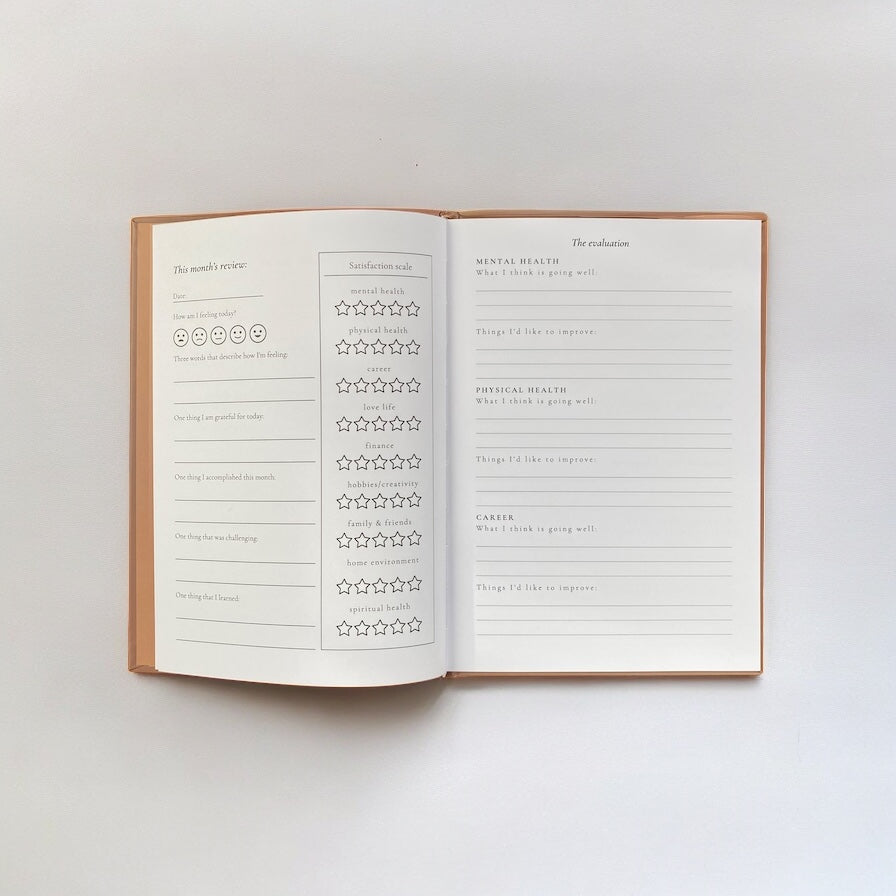 This month's review:
Date:
How am I feeling today?
Three words that describe how I'm feeling:
One thing I am grateful for today:
One thing I accomplished this month:
One thing that was challenging:
One thing that I learned:
Satisfaction scale
mental health
physical health
career
love life
finance
hobbies/creativity
family & friends
home environment
spiritual health
The evaluation
MENTAL HEALTH
What I think is going well:
Things I'd like to improve:
PHYSICAL HEALTH
What I think is going well:
Things I'd like to improve:
CAREER
What I think is going well:
Things I'd like to improve: